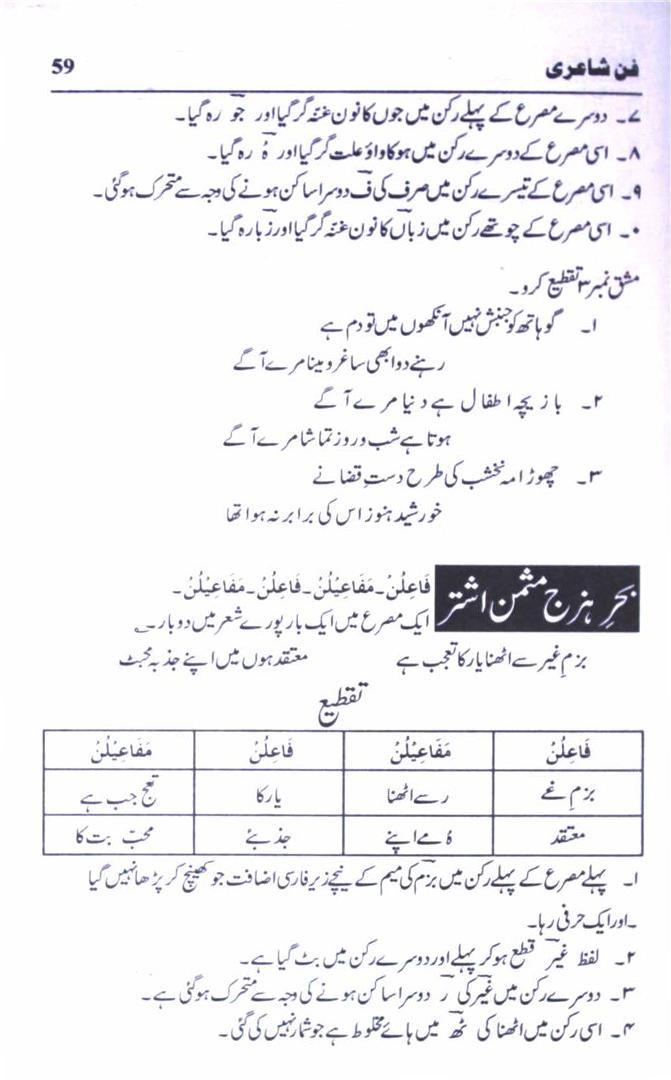 فن شاعری 59
۷۔ دوسرے مصرع کے پہلے رکن میں جوں کا نون غنّہ گر گیا اور جَو رہ گیا۔
۸۔ اسی مصرع کے دوسرے رکن میں ہو کا واؤ علت گر گیا اور ہُ رہ گیا۔
۹۔ اسی مصرع کے تیسرے رکن میں صرف کی ف دوسرا ساکن ہونے کی وجہ سے متحرک ہو گئی۔
۰۔ اسی مصرع کے چوتھے رکن میں زباں کا نون غنّہ گر گیا اور زبا رہ گیا۔
مشق نمبر ۳ تقطیع کرو۔
۱۔ گو ہاتھ کو جنبش نہیں آنکھوں میں تو دم ہے
رہنے دو ابھی ساغر و مینا مرے آگے
۲۔ بازیچہ اطفال ہے دنیا مرے آگے
ہوتا ہے شب و روز تماشا مرے آگے
۳۔ چھوڑا مہ نخشب کی طرح دستِ قضا نے
خورشید ہنوز اس کی برابر نہ ہوا تھا
بحرِ ہزج مثمن اشتر
فَاعِلُنْ۔ مَفَاعِیْلُنْ۔ فَاعِلُنْ۔ مَفَاعِیْلُنْ۔
ایک مصرع میں ایک بار پورے شعر میں دو بار۔
بزمِ غیر سے اٹھنا یار کا تعجب ہے معتقد ہوں میں اپنے جذبہ محبّت
تقطیع
فَاعِلُنْ مَفَاعِیْلُنْ فَاعِلُنْ مَفَاعِیْلُنْ
بزمِ غے رسے اٹھنا یار کا تعج جب ہے
معتقد ہُ مے اپنے جذبئے محبّ بت کا
۱۔ پہلے مصرع کے پہلے رکن میں بزم کی میم کے نیچے زیر فارسی اضافت جو کھینچ کر پڑھا نہیں گیا
۔اور ایک حرفی رہا۔
۲۔ لفظ غیر قطع ہو کر پہلے اور دوسرے رکن میں بٹ گیا ہے۔
۳۔ دوسرے رکن میں غیر کی ر دوسرا ساکن ہونے کی وجہ سے متحرک ہو گئی ہے۔
۴۔ اسی رکن میں اٹھنا کی ٹھ میں ہائے مخلوط ہے جو شمار نہیں کی گئی۔